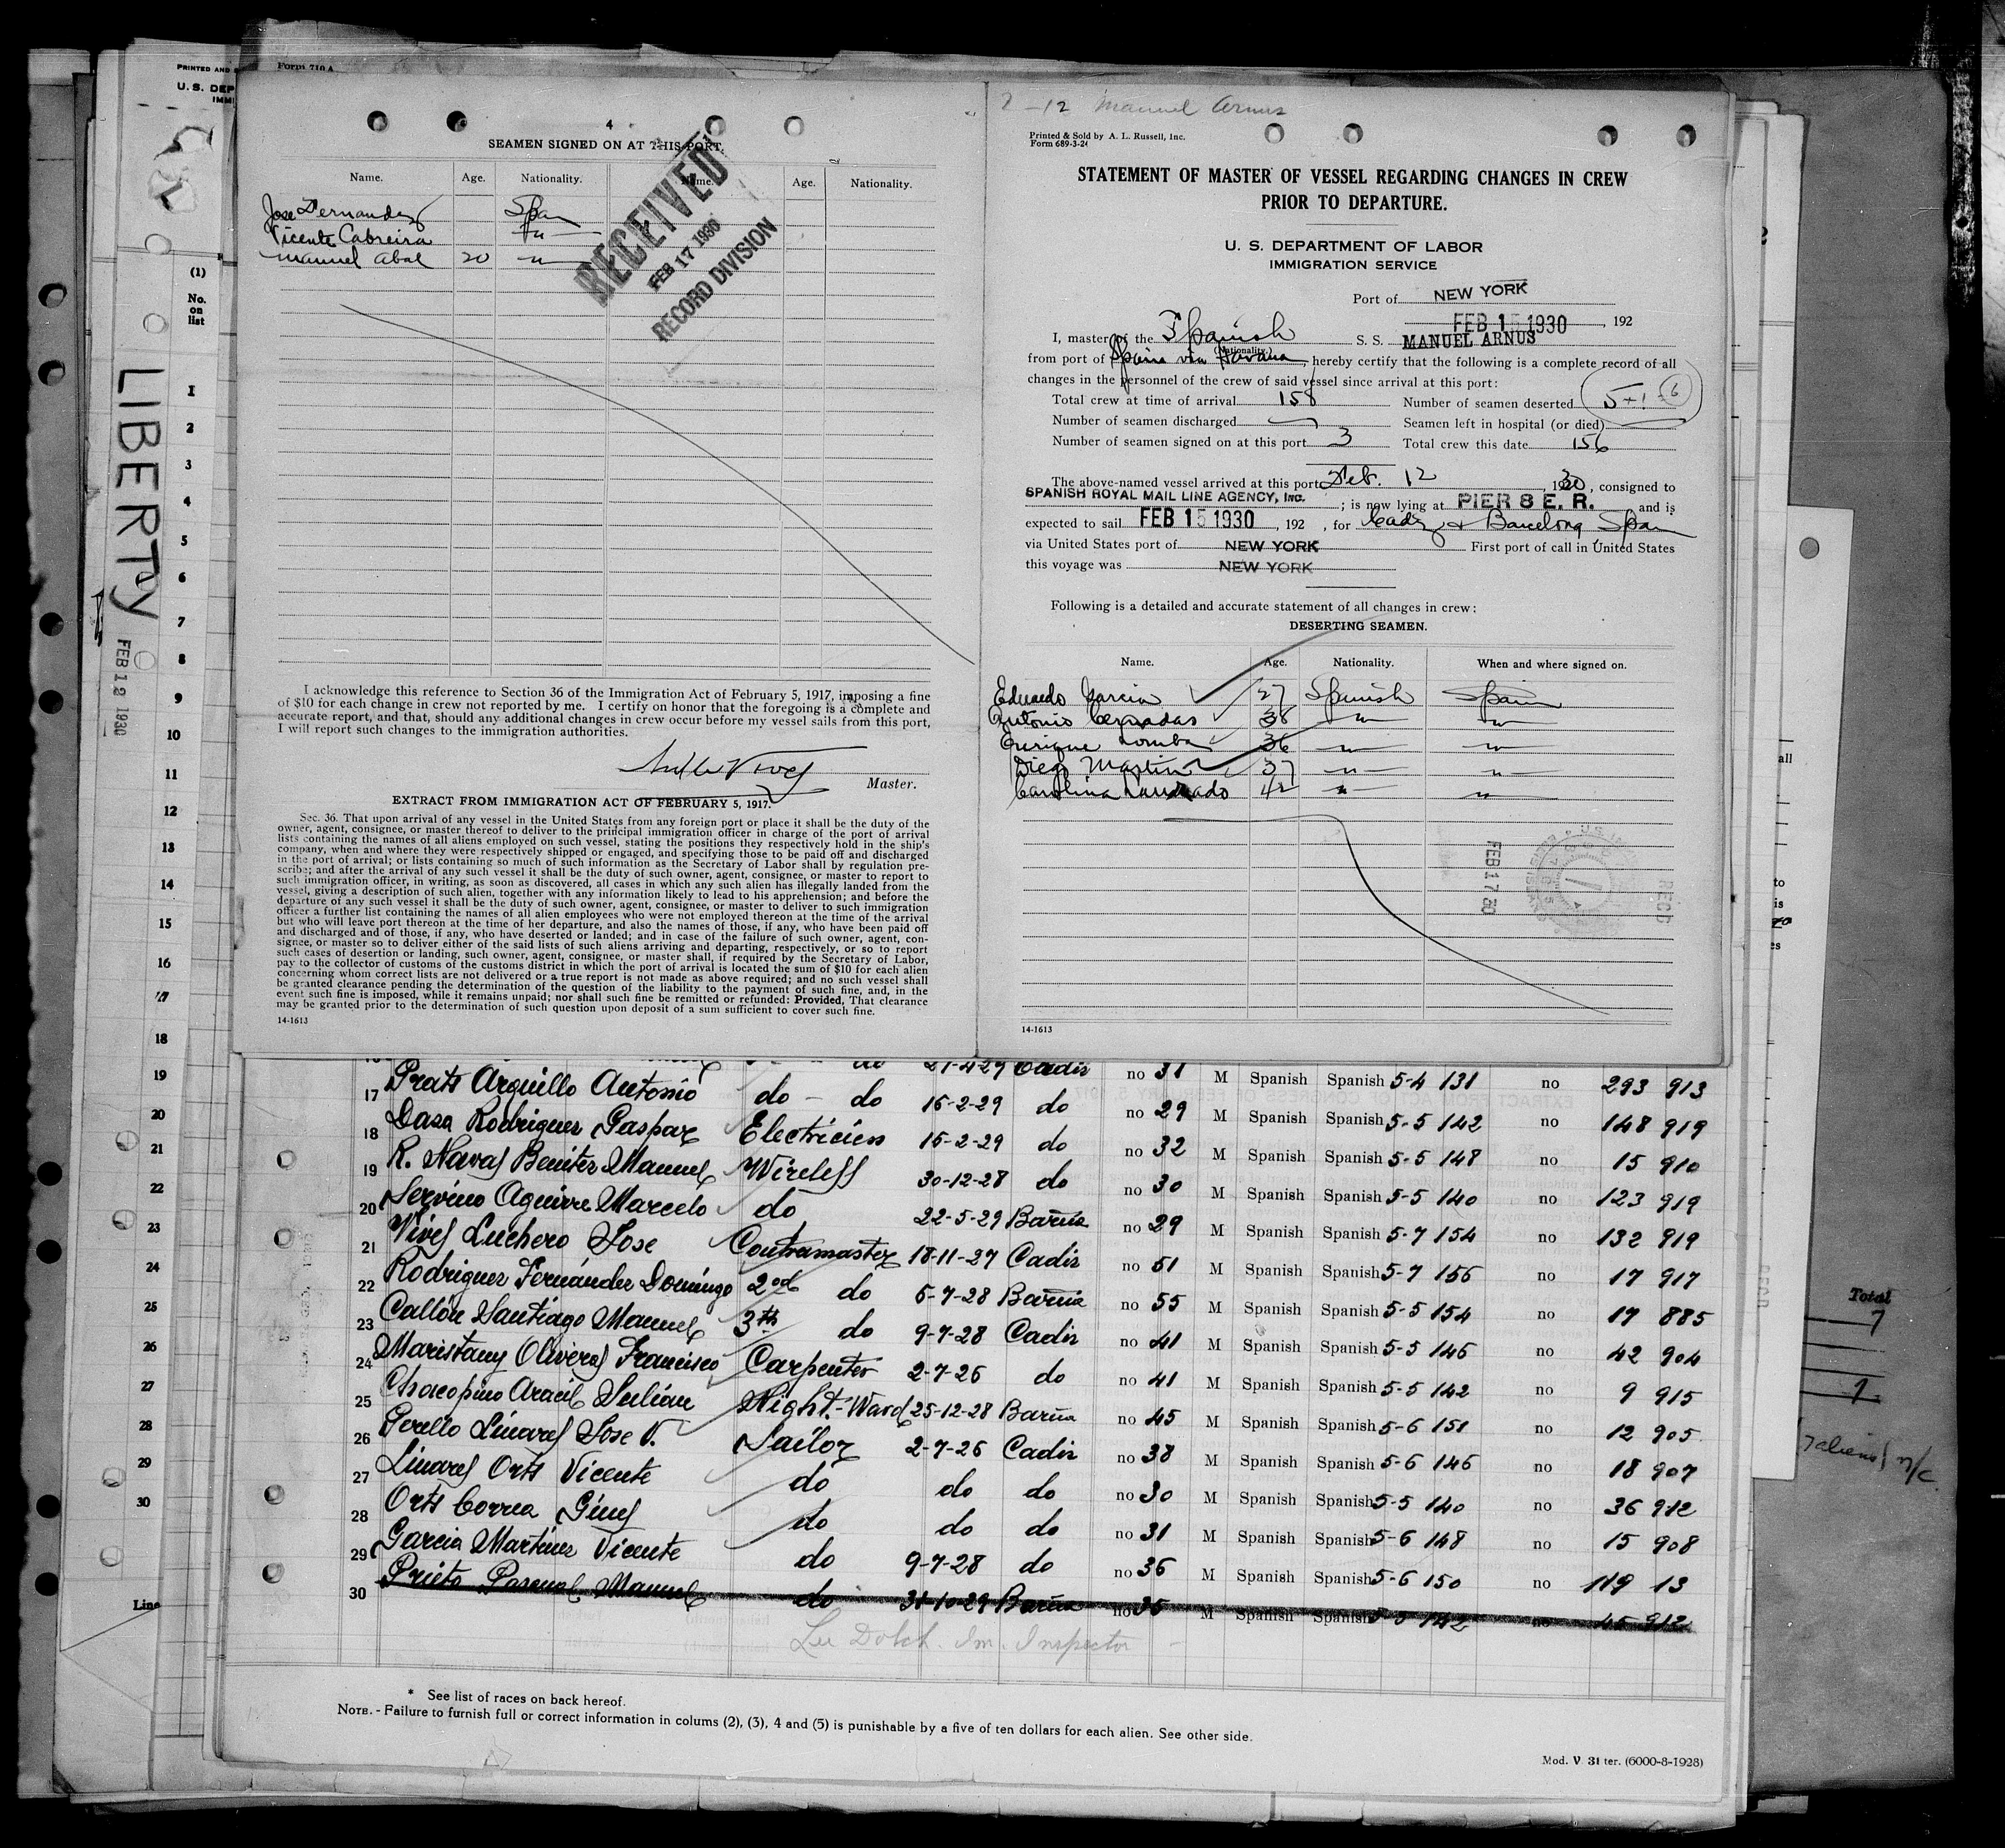 Form 710 A
PRINTED AND
U. S. DEP
IMMI
(1)
No.
on
list
1
2
3
4
5
6
7
8
9
10
11
12
13
14
15
16
17
18
19
20
21
22
23
24
25
26
27
28
29
30
Line
LIBERTY
FEB 12 1930
4
SEAMEN SIGNED ON AT THIS PORT.
Name. Age. Nationality. Name. Age. Nationality.
Jose Fernandez Span
Vicente Cabreira "
Manuel Abal 20 "
RECEIVED
FEB 17 1930
RECORD DIVISION
I acknowledge this reference to Section 36 of the Immigration Act of February 5, 1917, imposing a fine
of $10 for each change in crew not reported by me. I certify on honor that the foregoing is a complete and
accurate report, and that, should any additional changes in crew occur before my vessel sails from this port,
I will report such changes to the immigration authorities.
Master.
EXTRACT FROM IMMIGRATION ACT OF FEBRUARY 5, 1917.
Sec. 36. That upon arrival of any vessel in the United States from any foreign port or place it shall be the duty of the
owner, agent, consignee, or master thereof to deliver to the principal immigration officer in charge of the port of arrival
lists containing the names of all aliens employed on such vessel, stating the positions they respectively hold in the ship's
company, when and where they were respectively shipped or engaged, and specifying those to be paid off and discharged
in the port of arrival; or lists containing so much of such information as the Secretary of Labor shall by regulation pre-
scribe; and after the arrival of any such vessel it shall be the duty of such owner, agent, consignee, or master to report to
such immigration officer, in writing, as soon as discovered, all cases in which any such alien has illegally landed from the
vessel, giving a description of such alien, together with any information likely to lead to his apprehension; and before the
departure of any such vessel it shall be the duty of such owner, agent, consignee, or master to deliver to such immigration
officer a further list containing the names of all alien employees who were not employed thereon at the time of the arrival
but who will leave port thereon at the time of her departure, and also the names of those, if any, who have been paid off
and discharged and of those, if any, who have deserted or landed; and in case of the failure of such owner, agent, con-
signee, or master so to deliver either of the said lists of such aliens arriving and departing, respectively, or so to report
such cases of desertion or landing, such owner, agent, consignee, or master shall, if required by the Secretary of Labor,
pay to the collector of customs of the customs district in which the port of arrival is located the sum of $10 for each alien
concerning whom correct lists are not delivered or a true report is not made as above required; and no such vessel shall
be granted clearance pending the determination of the question of the liability to the payment of such fine, and, in the
event such fine is imposed, while it remains unpaid; nor shall such fine be remitted or refunded: Provided, That clearance
may be granted prior to the determination of such question upon deposit of a sum sufficient to cover such fine.
14-1613
2-12 Manuel Arnus
Printed & Sold by A. L. Russell, Inc.
Form 689-3-24
STATEMENT OF MASTER OF VESSEL REGARDING CHANGES IN CREW
PRIOR TO DEPARTURE.
U. S. DEPARTMENT OF LABOR
IMMIGRATION SERVICE
Port of NEW YORK
FEB 15 1930, 192
I, master of the Spanish S. S. MANUEL ARNUS
(Nationality.)
from port of Spain via Havana, hereby certify that the following is a complete record of all
changes in the personnel of the crew of said vessel since arrival at this port:
Total crew at time of arrival 158 Number of seamen deserted 5+1 6
Number of seamen discharged Seamen left in hospital (or died)
Number of seamen signed on at this port 3 Total crew this date 156
The above-named vessel arrived at this port Feb. 12, 1930, consigned to
SPANISH ROYAL MAIL LINE AGENCY, Inc. ; is now lying at PIER 8 E. R. and is
expected to sail FEB 15 1930, 192 , for Cadiz & Barcelona Spain
via United States port of NEW YORK First port of call in United States
this voyage was NEW YORK
Following is a detailed and accurate statement of all changes in crew:
DESERTING SEAMEN.
Name. Age. Nationality. When and where signed on.
Eduardo Garcia 27 Spanish Spain
Antonio Cernadas 38 " "
Enrique Lomba 36 " "
Diego Martin 37 " "
Carolina 42 " "
FEB 17 30
RECD
14-1613
17 Prats Arguillo Antonio do - do 16-2-29 do no 31 M Spanish Spanish 5-4 131 no 293 913
18 Dasa Rodriguez Gaspar Electricien 16-2-29 do no 29 M Spanish Spanish 5-5 142 no 148 919
19 R. Navas Benitez Manuel Wireless 30-12-28 do no 32 M Spanish Spanish 5-5 148 no 15 910
20 Servino Aguirre Marcelo do 22-5-29 Barna no 30 M Spanish Spanish 5-5 140 no 123 919
21 Vives Luchero Jose Contramaster 18-11-27 Cadiz no 29 M Spanish Spanish 5-7 154 no 132 919
22 Rodriguez Fernández Domingo 2nd do 6-7-28 Barna no 51 M Spanish Spanish 5-7 156 no 17 917
23 Callón Santiago Manuel 3th do 9-7-28 Cadiz no 55 M Spanish Spanish 5-5 154 no 17 885
24 Maristany Oliveras Francisco Carpenter 2-7-26 do no 41 M Spanish Spanish 5-5 146 no 42 904
25 Chacopino Aracil Julian Night-Ward 25-12-28 Barna no 41 M Spanish Spanish 5-5 142 no 9 915
26 Perello Linares Jose V. Sailor 2-7-26 Cadiz no 45 M Spanish Spanish 5-6 151 no 12 905
27 Linares Orts Vicente do do do no 38 M Spanish Spanish 5-6 146 no 18 907
28 Orts Correa Gines do do do no 30 M Spanish Spanish 5-5 140 no 36 912
29 Garcia Martinez Vicente do 9-7-28 do no 31 M Spanish Spanish 5-6 148 no 15 908
30 Prieto Pascual Manuel do 31-10-29 Barna no 36 M Spanish Spanish 5-6 150 no 119 13
no 35 M Spanish Spanish 5-5 142 no 45 912
Lee Dolch. Im. Inspector
* See list of races on back hereof.
NOTE. - Failure to furnish full or correct information in colums (2), (3), 4 and (5) is punishable by a five of ten dollars for each alien. See other side.
Mod. V 31 ter. (6000-8-1928)
all
to
is
es
Total
7
7
7 aliens n/c